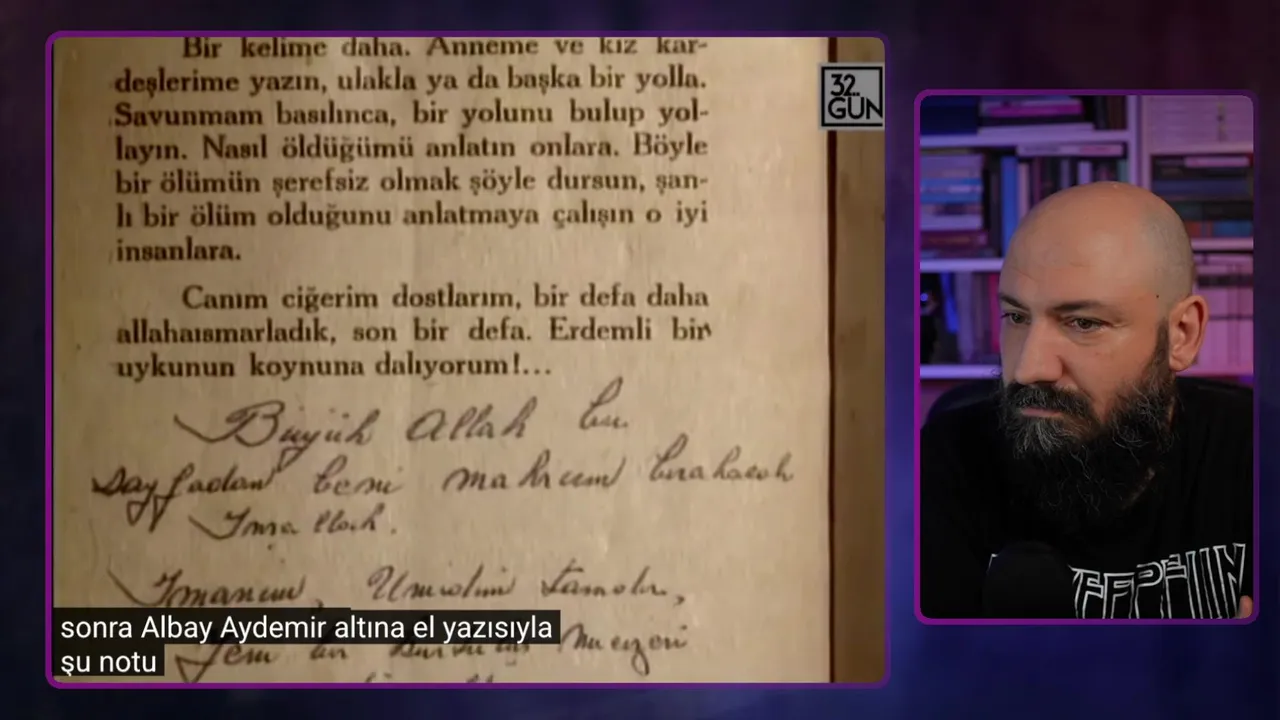 Bir kelime daha. Anneme ve kız kar-
deşlerime yazın, ulakla ya da başka bir yolla.
Savunmam basılınca, bir yolunu bulup yol-
layın. Nasıl öldüğümü anlatın onlara. Böyle
bir ölümün şerefsiz olmak şöyle dursun, şan-
lı bir ölüm olduğunu anlatmaya çalışın o iyi
insanlara.
Canım ciğerim dostlarım, bir defa daha
allahaısmarladık, son bir defa. Erdemli bir
uykunun koynuna dalıyorum!...
Büyük Allah bu
sayfadan beni mahrum bırakacak
İnşallah.
İmanım, Ümidim tamdır,
sonra Albay Aydemir altına el yazısıyla
şu notu
32.
GÜN